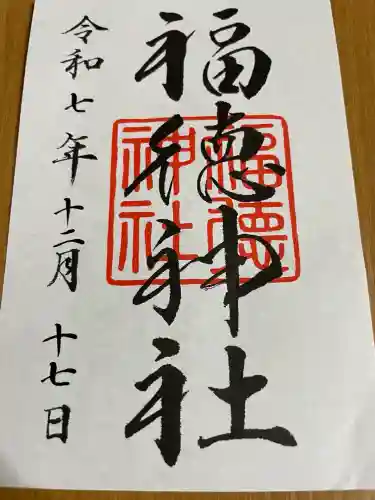 福徳神社
令和七年十二月十七日
福德
神社